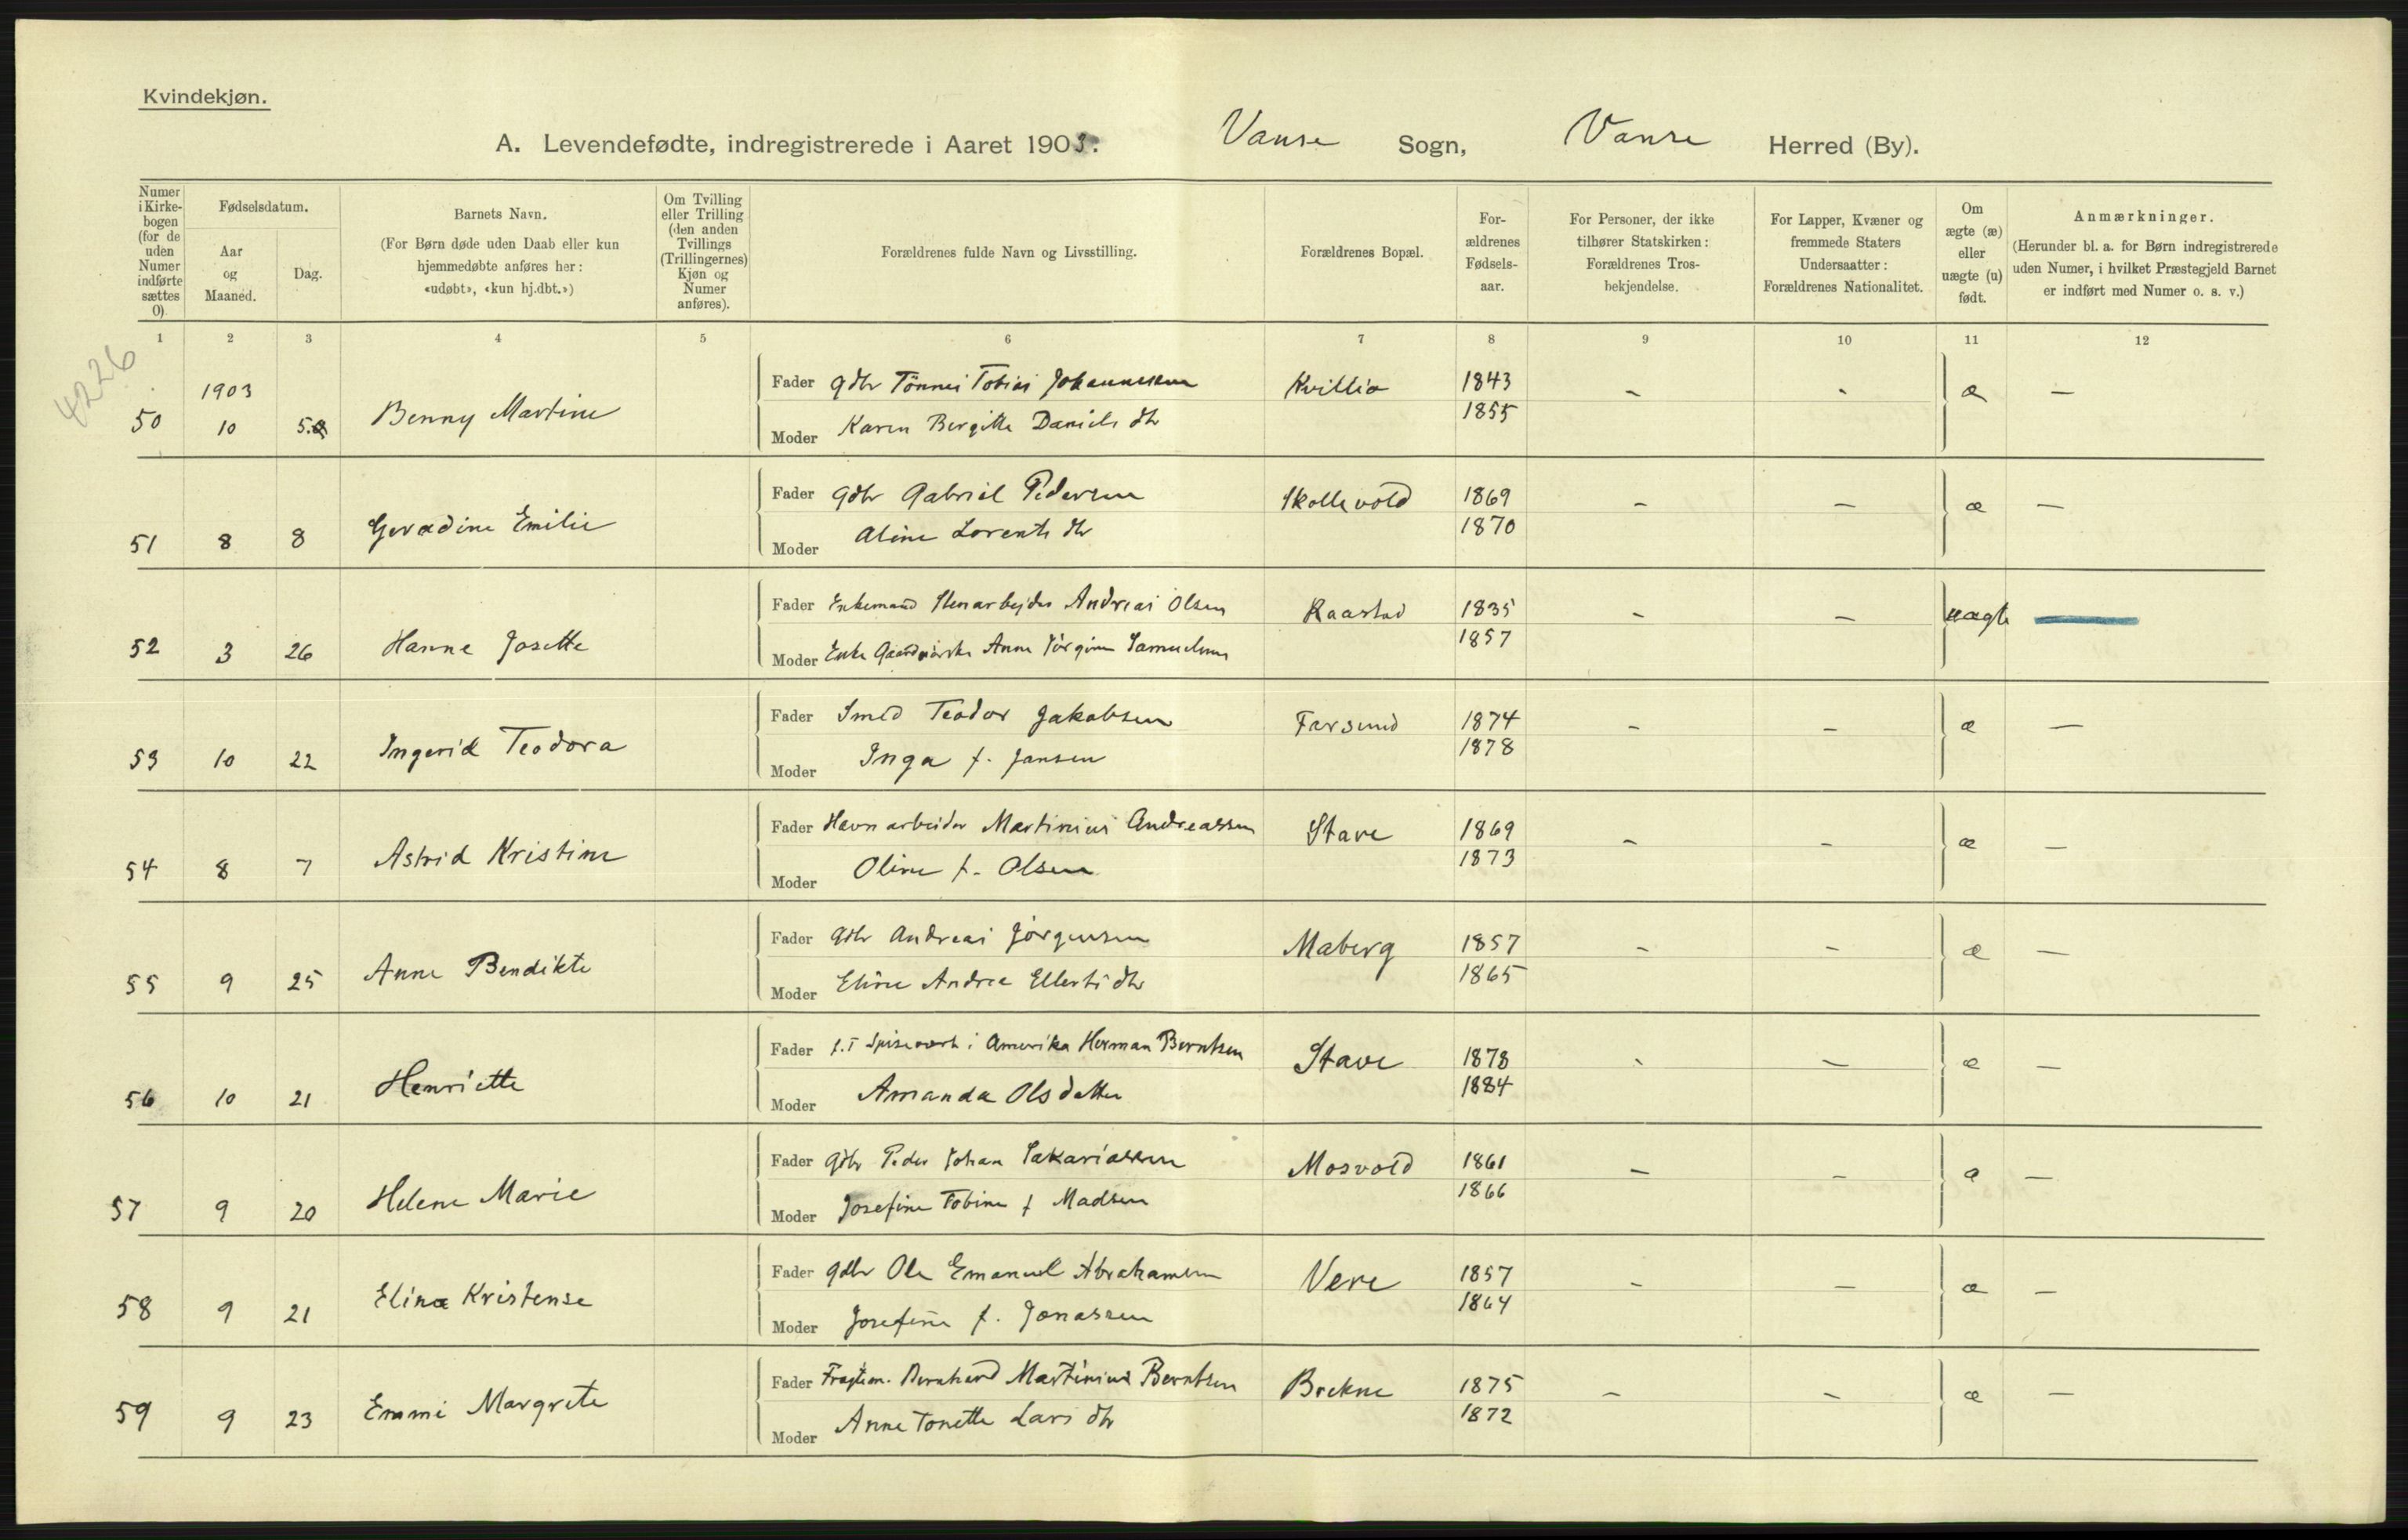 Kvindekjøn.
A. Levendefødte, indregistrerede i Aaret 1903. Vanse Sogn, Vanse Herred (By).
Numer i Kirkebogen (for de uden Numer indførte sættes 0).
Fødselsdatum.
Aar og Maaned.
Dag.
Barnets Navn.
(For Børn døde uden Daab eller kun hjemmedøbte anføres her: «udøbt», «kun hj.dbt.»)
Om Tvilling eller Trilling (den anden Tvillings (Trillingernes) Kjøn og Numer anføres).
Forældrenes fulde Navn og Livsstilling.
Forældrenes Bopæl.
Forældrenes Fødselsaar.
For Personer, der ikke tilhører Statskirken: Forældrenes Trosbekjendelse.
For Lapper, Kvæner og fremmede Staters Undersaatter: Forældrenes Nationalitet.
Om ægte (æ) eller uægte (u) født.
Anmærkninger.
(Herunder bl. a. for Børn indregistrerede uden Numer, i hvilket Præstegjeld Barnet er indført med Numer o. s. v.)
1 2 3 4 5 6 7 8 9 10 11 12
4226
1903
50 10 5. Benny Martine
Fader Gdbr Tönnes Tobias Johannesen Kvillio 1843 - - æ —
Moder Karen Bergitte Daniels dtr 1855
51 8 8 Geradine Emilie
Fader Gdbr Gabriel Pedersen Skollevold 1869 - - æ —
Moder Aline Lorents dtr 1870
52 3 26 Hanne Josette
Fader Enkemand Stenarbejder Andreas Olsen Raastad 1835 - - uægte —
Moder Enke Anne Jörgine Samuelsen 1857
53 10 22 Ingerid Teodora
Fader Smed Teodor Jakobsen Farsund 1874 - - æ —
Moder Inga f. Jansen 1878
54 8 7 Astrid Kristine
Fader Havnarbeider Martinius Andreassen Stave 1869 - - æ —
Moder Oline f. Olsen 1873
55 9 25 Anne Bendikte
Fader Gdbr Andreas Jörgensen Maberg 1857 - - æ —
Moder Eline Andrea Ellerts dtr 1865
56 10 21 Henriette
Fader f.T Spisevært i Amerika Herman Berntsen Stave 1878 - - æ —
Moder Amanda Olsdatter 1884
57 9 20 Helene Marie
Fader Gdbr Peder Johan Sakariassen Mosvold 1861 - - æ —
Moder Josefine Tobine f Madsen 1866
58 9 21 Elina Kristense
Fader Gdbr Ole Emanuel Abrahamsen Vere 1857 - - æ —
Moder Josefine f. Jonassen 1864
59 9 23 Emmi Margrete
Fader Fragtem. Bernhard Martinius Berntsen Brekne 1875 - - æ —
Moder Anne Tonette Lars dtr 1872